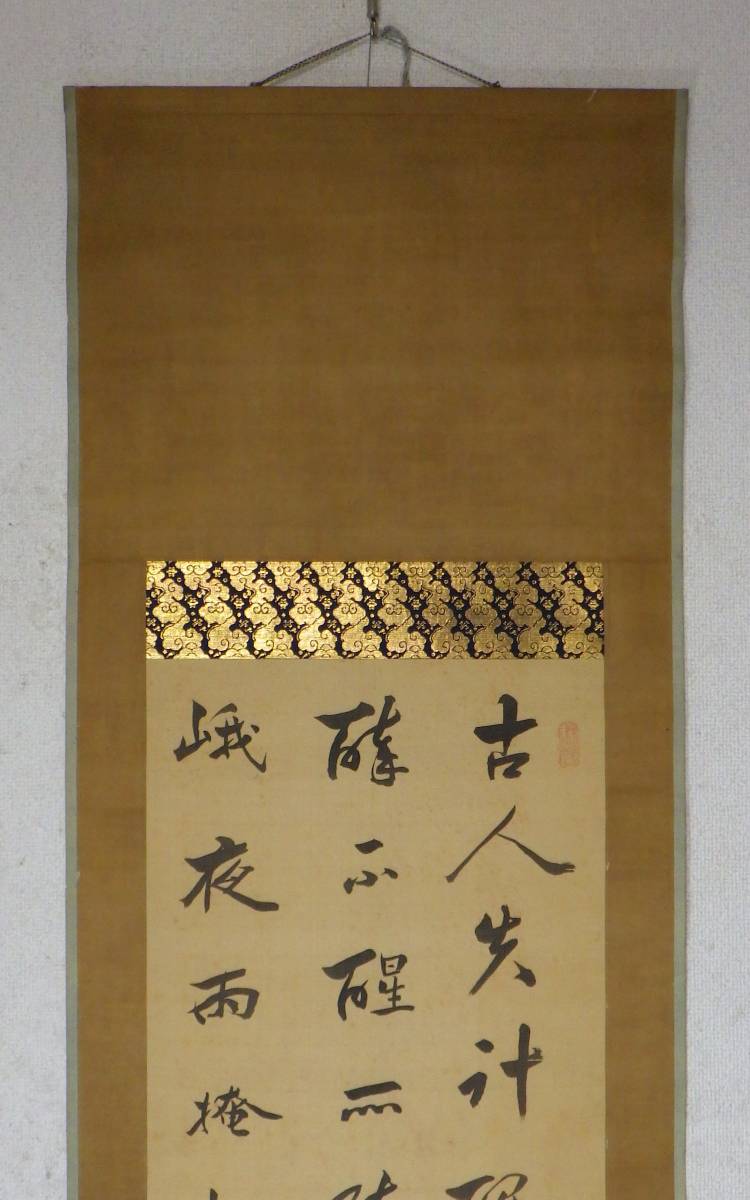 古人失計
醉不醒而
峨夜雨掩